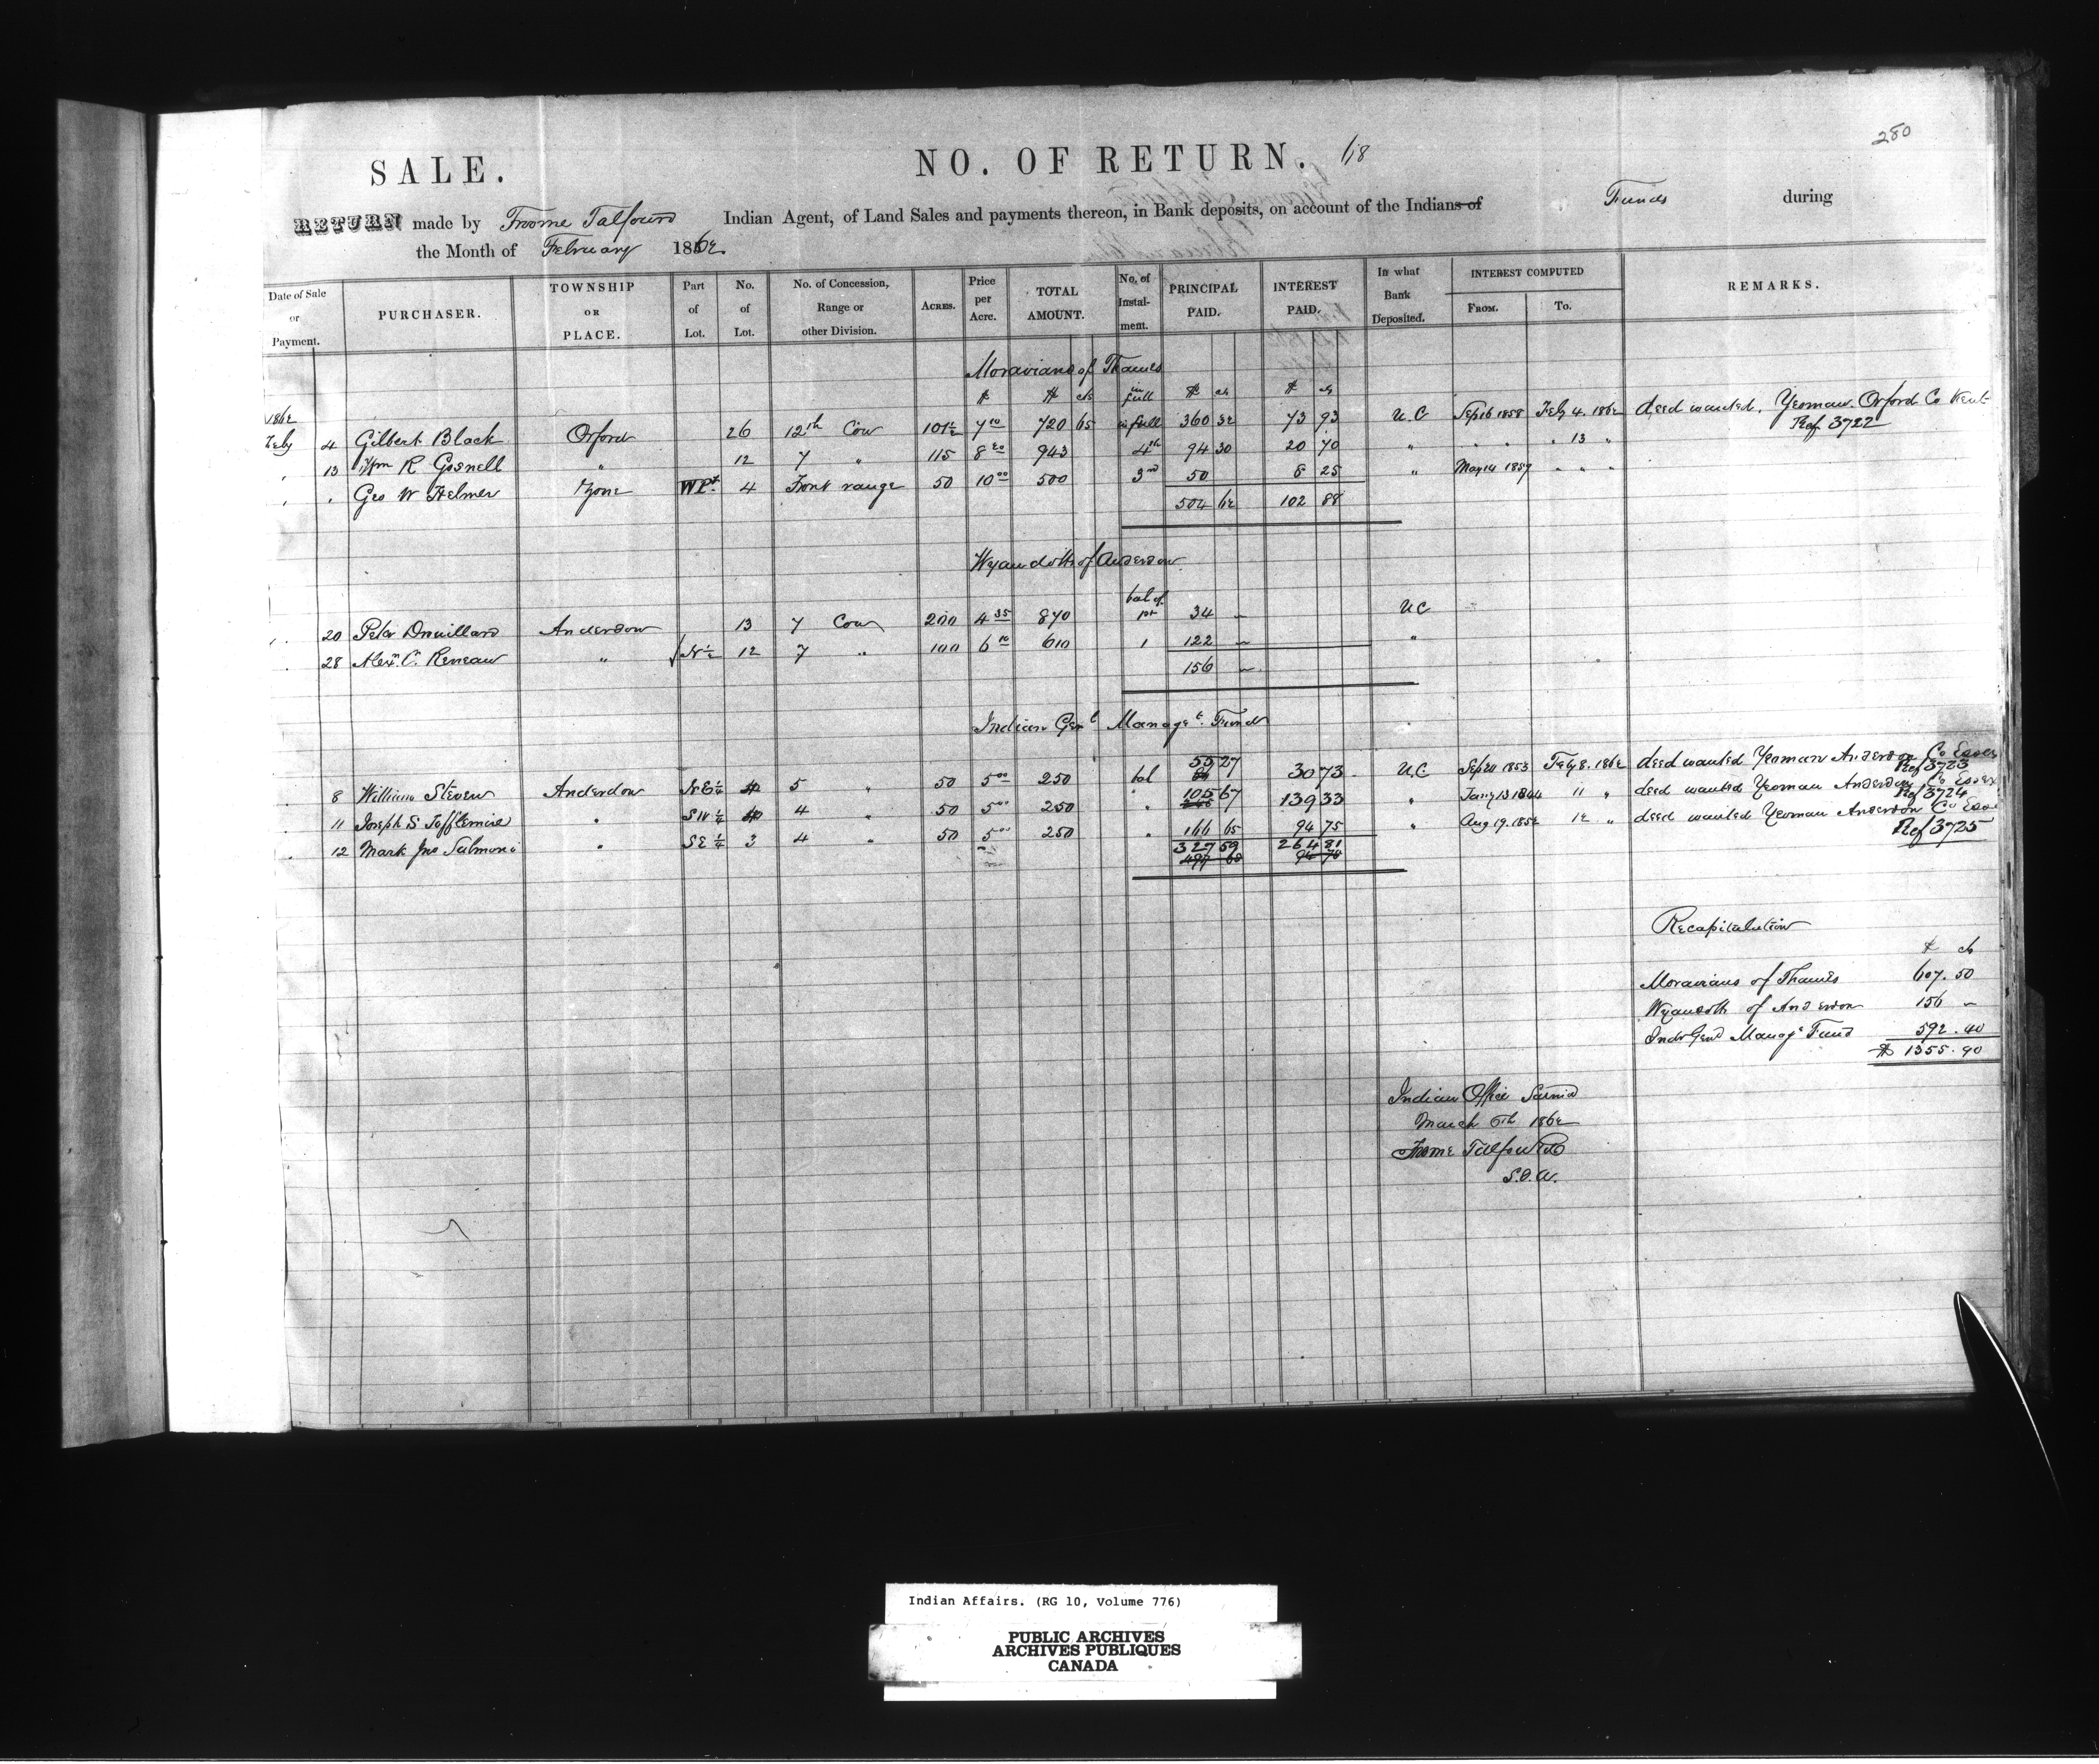 280
SALE. NO. OF RETURN. 68
RETURN made by Froome Talfourd Indian Agent, of Land Sales and payments thereon, in Bank deposits, on account of the Indians of Funds during
the Month of February 1862
Date of Sale or Payment. PURCHASER. TOWNSHIP OR PLACE. Part of Lot. No. of Lot. No. of Concession, Range or other Division. ACRES. Price per Acre. TOTAL AMOUNT. No. of Instal- ment. PRINCIPAL PAID. INTEREST PAID. In what Bank Deposited. INTEREST COMPUTED FROM. TO. REMARKS.
Moravians of Thames
$ $ cts in full $ cts $ cts
1862
Feby 4 Gilbert Black Orford 26 12th Con 101½ 7 10 720 65 in full 360 32 73 93 U.C Sep 16 1858 Feby 4. 1862 deed wanted. Yeoman. Orford Co Kent
Ref 3722
" 13 Wm R Gosnell " 12 7 " 115 8 20 943 4th 94 30 20 70 " " " " " 13 "
" " Geo W Helmer Zone W Pt. 4 Front range 50 10 00 500 3rd 50 8 25 " May 14 1859 " " "
504 62 102 88
Wyandotts of Anderdon
20 Peter Drouillard Anderdon 13 7 Con 200 4 35 870 bal of 1st 34 – U C
28 Alexr. C. Reneau " N ½ 12 7 " 100 6 10 610 1 122 – "
156 –
Indian Genl Managet. Fund
8 William Steven Anderdon NE ¼ 4 5 " 50 5 00 250 bal 55 27 30 73 U.C Sep 20 1853 Feby 8. 1862 deed wanted Yeoman Anderdon Co Essex
Ref 3723
11 Joseph S Tofflemire " SW ¼ 4 " 50 5 00 250 " 105 67 139 33 " Jany 13 1844 11 " deed wanted Yeoman Anderdon Co Essex
Ref 3724
12 Mark Jno Salmoni " SE ¼ 3 4 " 50 5 00 250 " 166 65 94 75 " Aug 19. 1852 12 " deed wanted Yeoman Anderdon Co Esse
Ref 3725
327 59 264 81
Recapitulation
$ cts
Moravians of Thames 607. 50
Wyandotts of Anderdon 156 –
Indn Genl Manage Fund 592. 40
$ 1355. 90
Indian Office Sarnia
March 6th 1862
Froome Talfourd
S.I.A.
Indian Affairs. (RG 10, Volume 776)
PUBLIC ARCHIVES
ARCHIVES PUBLIQUES
CANADA